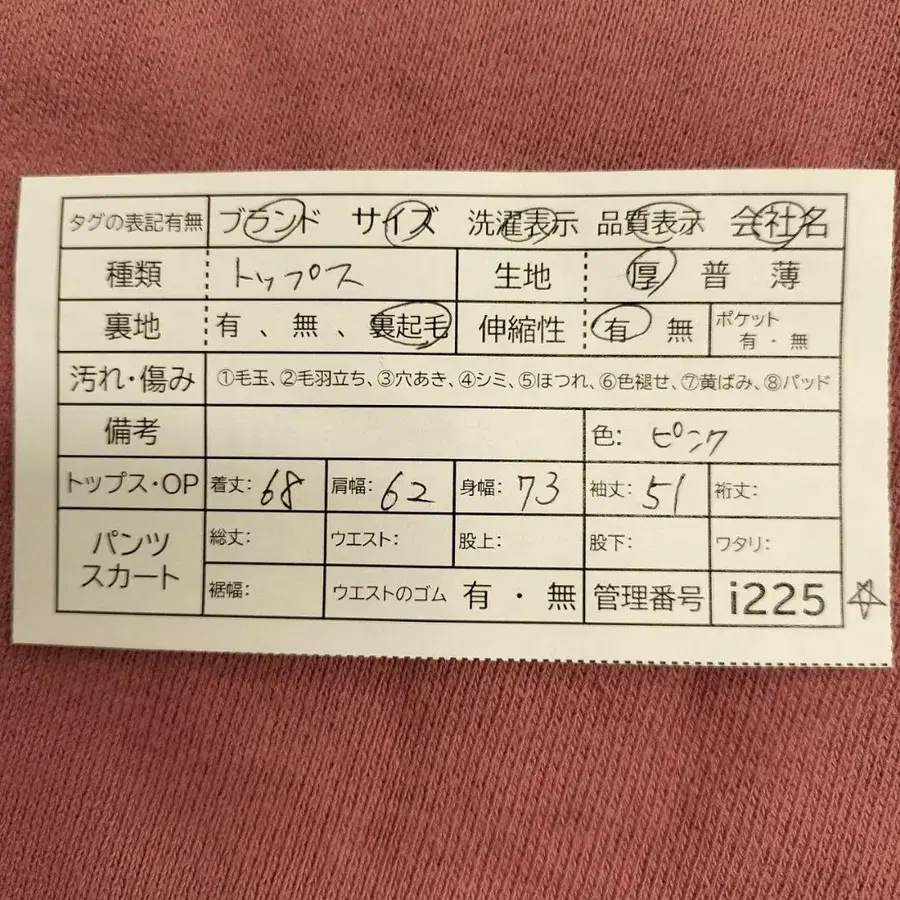 タグの表記有無 ブランド サイズ 洗濯表示 品質表示 会社名
種類 トップス 生地 厚 普 薄
裏地 有、無、裏起毛 伸縮性 有 無 ポケット 有・無
汚れ・傷み ①毛玉、②毛羽立ち、③穴あき、④シミ、⑤ほつれ、⑥色褪せ、⑦黄ばみ、⑧パッド
備考 色: ピンク
トップス・OP 着丈: 68 肩幅: 62 身幅: 73 袖丈: 51 裄丈:
パンツ スカート 総丈: ウエスト: 股上: 股下: ワタリ:
裾幅: ウエストのゴム 有・無 管理番号 i225